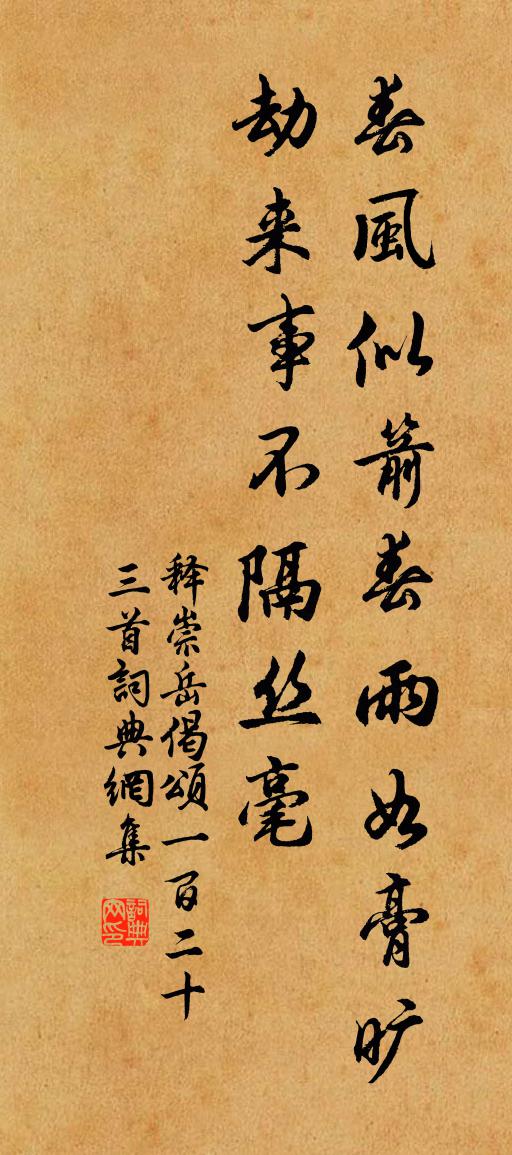 春風似箭春雨如膏旷
劫来事不隔丝毫
释崇岳偈頌一百二十
三首詞典網集
詞典網印